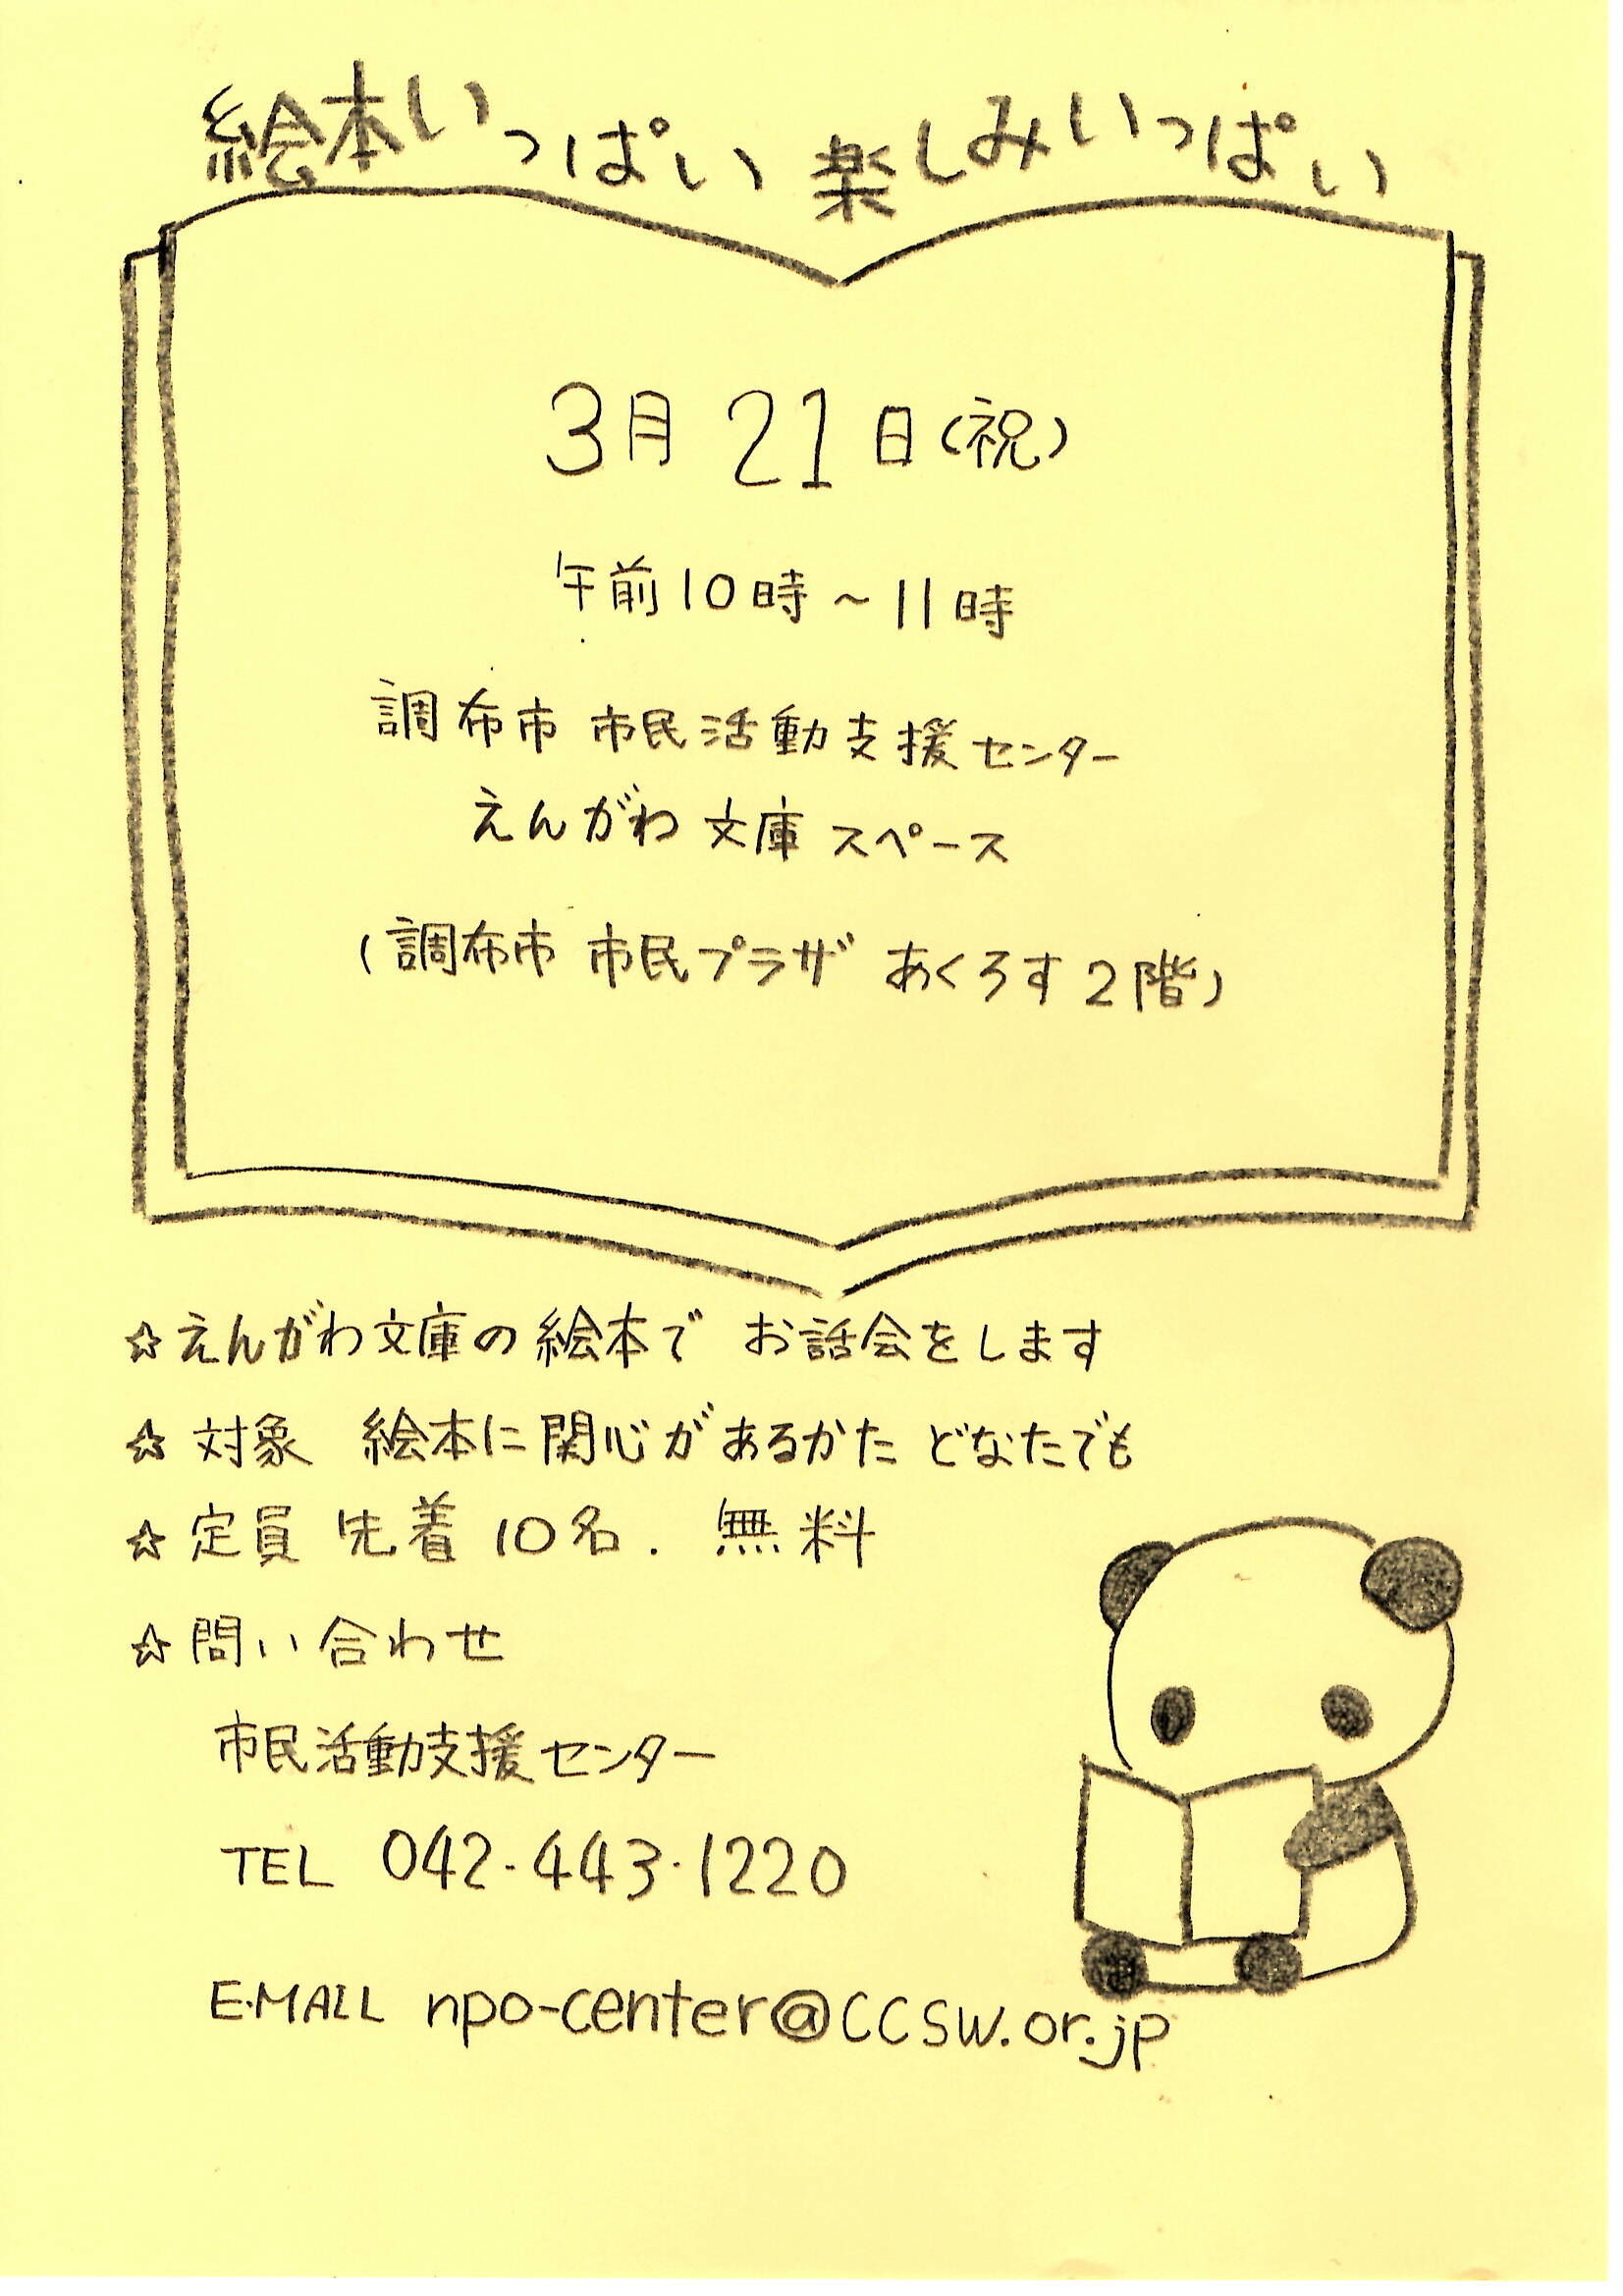 絵本いっぱい 楽しみいっぱい
3月21日(祝)
午前10時~11時
調布市 市民活動支援センター
えんがわ 文庫 スペース
(調布市 市民プラザ あくろす2階)
☆えんがわ文庫の絵本で お話会をします
☆対象 絵本に関心があるかた どなたでも
☆定員 先着10名. 無料
☆問い合わせ
市民活動支援センター
TEL 042-443-1220
E-MAIL npo-center@ccsw.or.jp